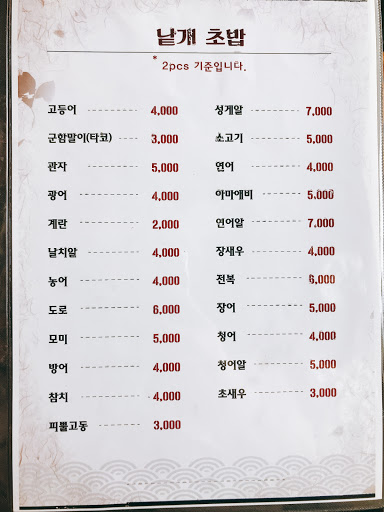 낱개 초밥
* 2pcs 기준입니다.
고등어 4,000
군함말이(타코) 3,000
관자 5,000
광어 4,000
계란 2,000
날치알 4,000
농어 4,000
도로 6,000
모미 5,000
방어 4,000
참치 4,000
피뿔고동 3,000
성게알 7,000
소고기 5,000
연어 4,000
아마애비 5,000
연어알 7,000
장새우 4,000
전복 6,000
장어 5,000
청어 4,000
청어알 5,000
초새우 3,000